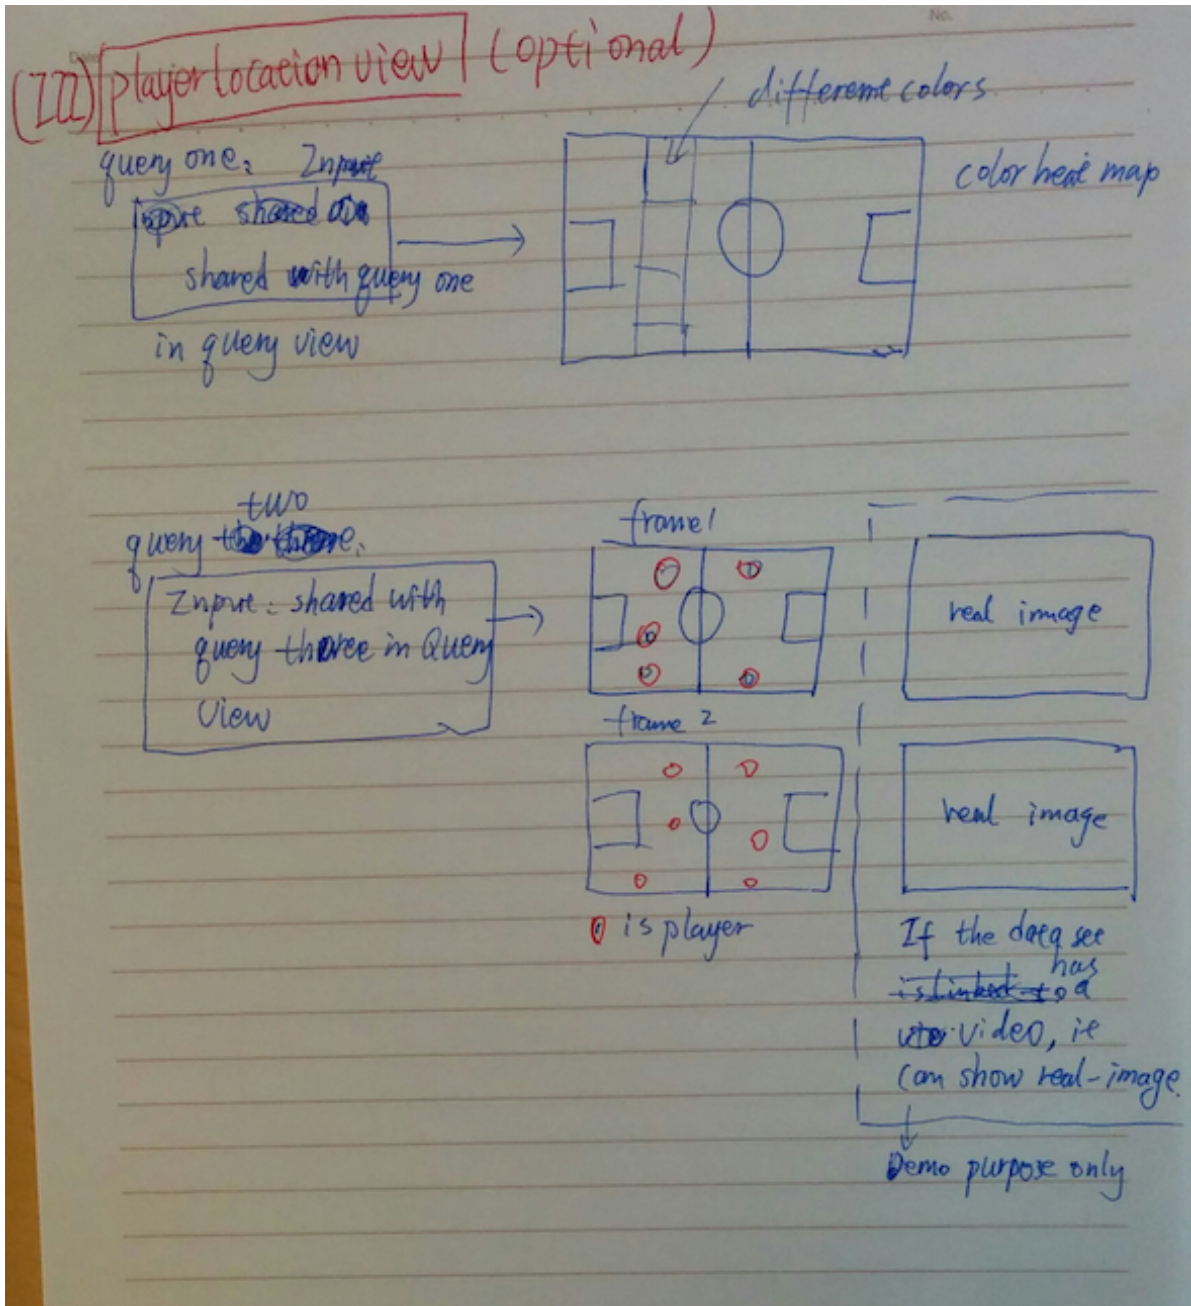 No.
(III) player location view (optional)
different colors
query one: Input
shared
shared with query one
in query view
color heat map
two
query
Input: shared with
query three in Query
View
frame 1
real image
frame 2
real image
is player
If the data set
is linked to has a
video, it
can show real-image.
Demo purpose only